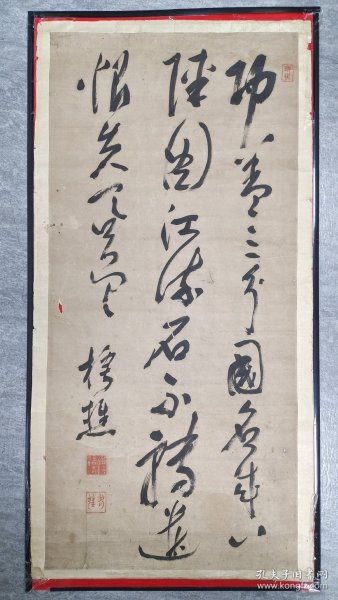 功蓋三分國名成八
陣圖江流石不轉遺
恨失吞吳
樵
孔夫子旧书网
www.kongfz.com